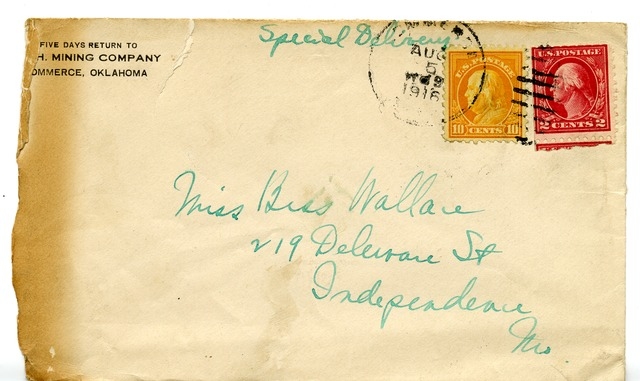 FIVE DAYS RETURN TO
H. MINING COMPANY
OMMERCE, OKLAHOMA
Special Delivery
AUG
5
1916
U.S. POSTAGE
10 CENTS 10
U.S. POSTAGE
2 CENTS 2
Miss Bess Wallace
219 Deleware St
Independence
Mo.